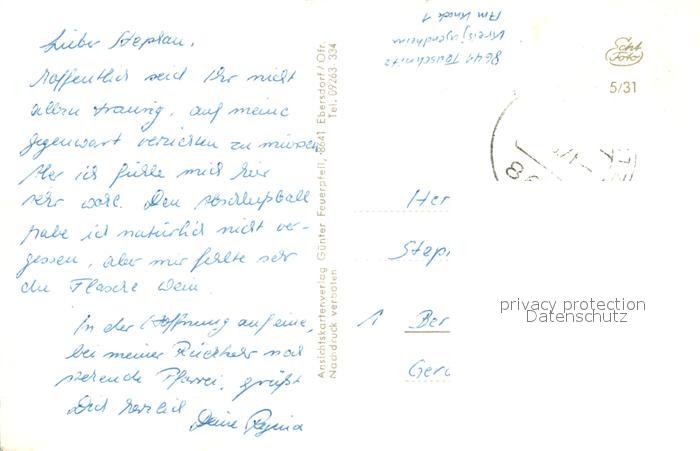 Lieber Stephan,
hoffentlich seid Ihr nicht
allzu traurig, auf meine
Gegenwart verzichten zu müssen
Aber ich fühle mich hier
sehr wohl. Den
habe ich natürlich nicht ver-
gessen, aber mir fehlte sehr
die Flasche Wein.
In der Hoffnung auf eine,
bei meiner Rückkehr noch
stehende Pfarrei, grüßt
Dich herzlich
Deine Regina
Ansichtskartenverlag Günter Feuerpfeil, 8641 Ebersdorf/Ofr.
Nachdruck verboten Tel. 09263 334
8641 Tauschnitz
Kreisjugendheim
Am Knock 1
Echt
Foto
5/31
Her
Step
1 Ber
Gera
privacy protection
Datenschutz